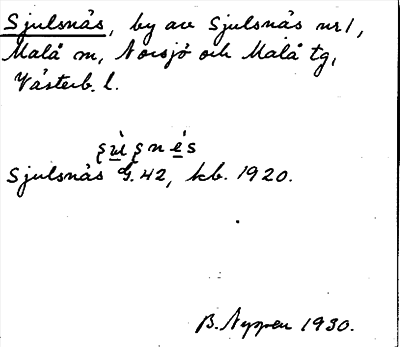 Sjulsnäs, by av Sjulsnäs nr 1,
Malå sn, Norsjö och Malå tg,
Västerb. l.
Sjulsnäs G.42, kb. 1920.
B. Nyman 1930.